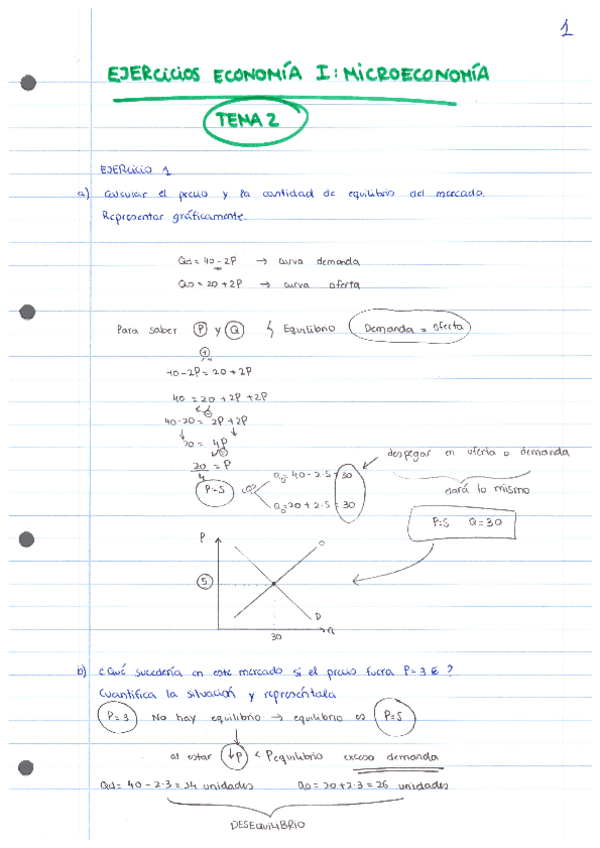 1
EJERCICIOS ECONOMÍA I: MICROECONOMÍA
TEMA 2
EJERCICIO 1
a) Calcular el precio y la cantidad de equilibrio del mercado.
Representar gráficamente.
Qd = 40 - 2P → curva demanda
Qo = 20 + 2P → curva oferta
Para saber P y Q Equilibrio Demanda = oferta
40 - 2P = 20 + 2P
40 = 20 + 2P + 2P
40 - 20 = 2P + 2P
20 = 4P
despegar en oferta o demanda
20/4 = P
dará lo mismo
P=5 ¿Q?
Qd = 40 - 2·5 = 30
Qo = 20 + 2·5 = 30
P=5 Q=30
P
O
5
D
Q
30
b) ¿Qué sucedería en este mercado si el precio fuera P=3€?
Cuantifica la situación y represéntala
P=3 No hay equilibrio → equilibrio es P=5
al estar ↓P < Pequilibrio exceso demanda
Qd = 40 - 2·3 = 34 unidades Qo = 20 + 2·3 = 26 unidades
DESEQUILIBRIO